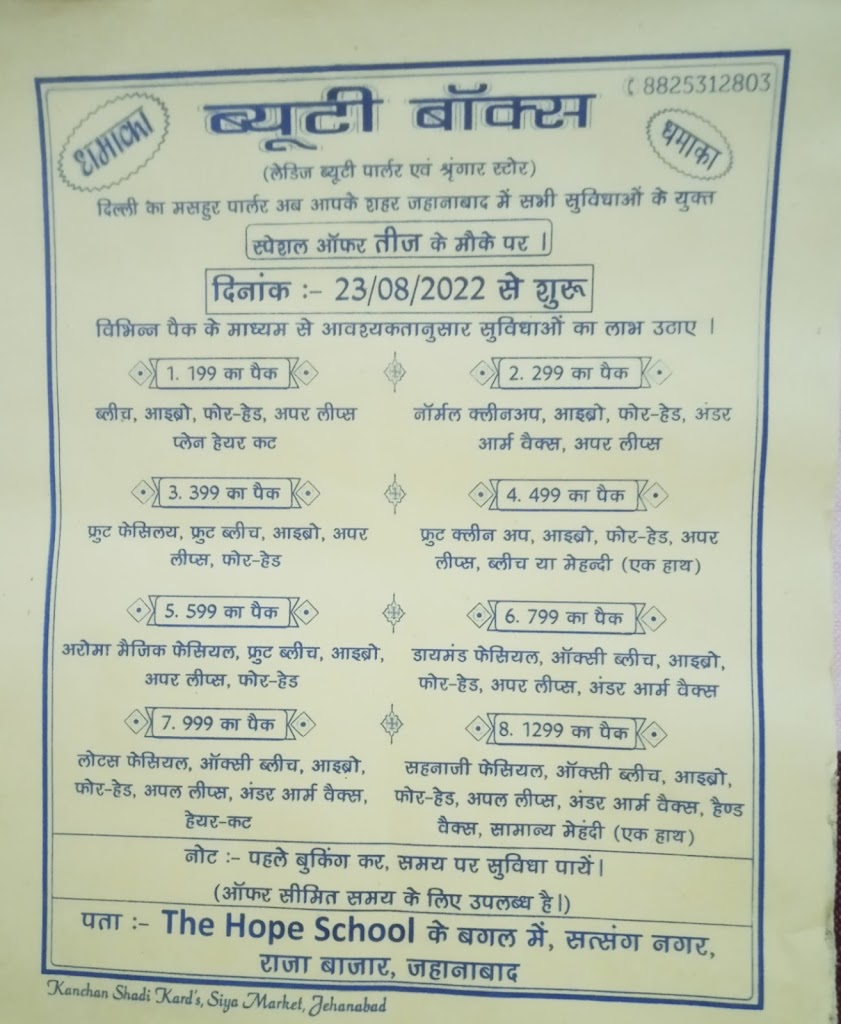 8825312803
धमाका ब्यूटी बॉक्स धमाका
(लेडिज ब्यूटी पार्लर एवं श्रृंगार स्टोर)
दिल्ली का मसहुर पार्लर अब आपके शहर जहानाबाद में सभी सुविधाओं के युक्त
स्पेशल ऑफर तीज के मौके पर ।
दिनांक :- 23/08/2022 से शुरू
विभिन्न पैक के माध्यम से आवश्यकतानुसार सुविधाओं का लाभ उठाए ।
1. 199 का पैक
ब्लीच, आइब्रो, फोर-हेड, अपर लीप्स
प्लेन हेयर कट
2. 299 का पैक
नॉर्मल क्लीनअप, आइब्रो, फोर-हेड, अंडर
आर्म वैक्स, अपर लीप्स
3. 399 का पैक
फ्रुट फेसिलय, फ्रुट ब्लीच, आइब्रो, अपर
लीप्स, फोर-हेड
4. 499 का पैक
फ्रुट क्लीन अप, आइब्रो, फोर-हेड, अपर
लीप्स, ब्लीच या मेहन्दी (एक हाथ)
5. 599 का पैक
अरोमा मैजिक फेसियल, फ्रुट ब्लीच, आइब्रो,
अपर लीप्स, फोर-हेड
6. 799 का पैक
डायमंड फेसियल, ऑक्सी ब्लीच, आइब्रो,
फोर-हेड, अपर लीप्स, अंडर आर्म वैक्स
7. 999 का पैक
लोटस फेसियल, ऑक्सी ब्लीच, आइब्रो,
फोर-हेड, अपल लीप्स, अंडर आर्म वैक्स,
हेयर-कट
8. 1299 का पैक
सहनाजी फेसियल, ऑक्सी ब्लीच, आइब्रो,
फोर-हेड, अपल लीप्स, अंडर आर्म वैक्स, हैण्ड
वैक्स, सामान्य मेहंदी (एक हाथ)
नोट :- पहले बुकिंग कर, समय पर सुविधा पायें।
(ऑफर सीमित समय के लिए उपलब्ध है।)
पता :- The Hope School के बगल में, सत्संग नगर,
राजा बाजार, जहानाबाद
Kanchan Shadi Kard's, Siya Market, Jehanabad